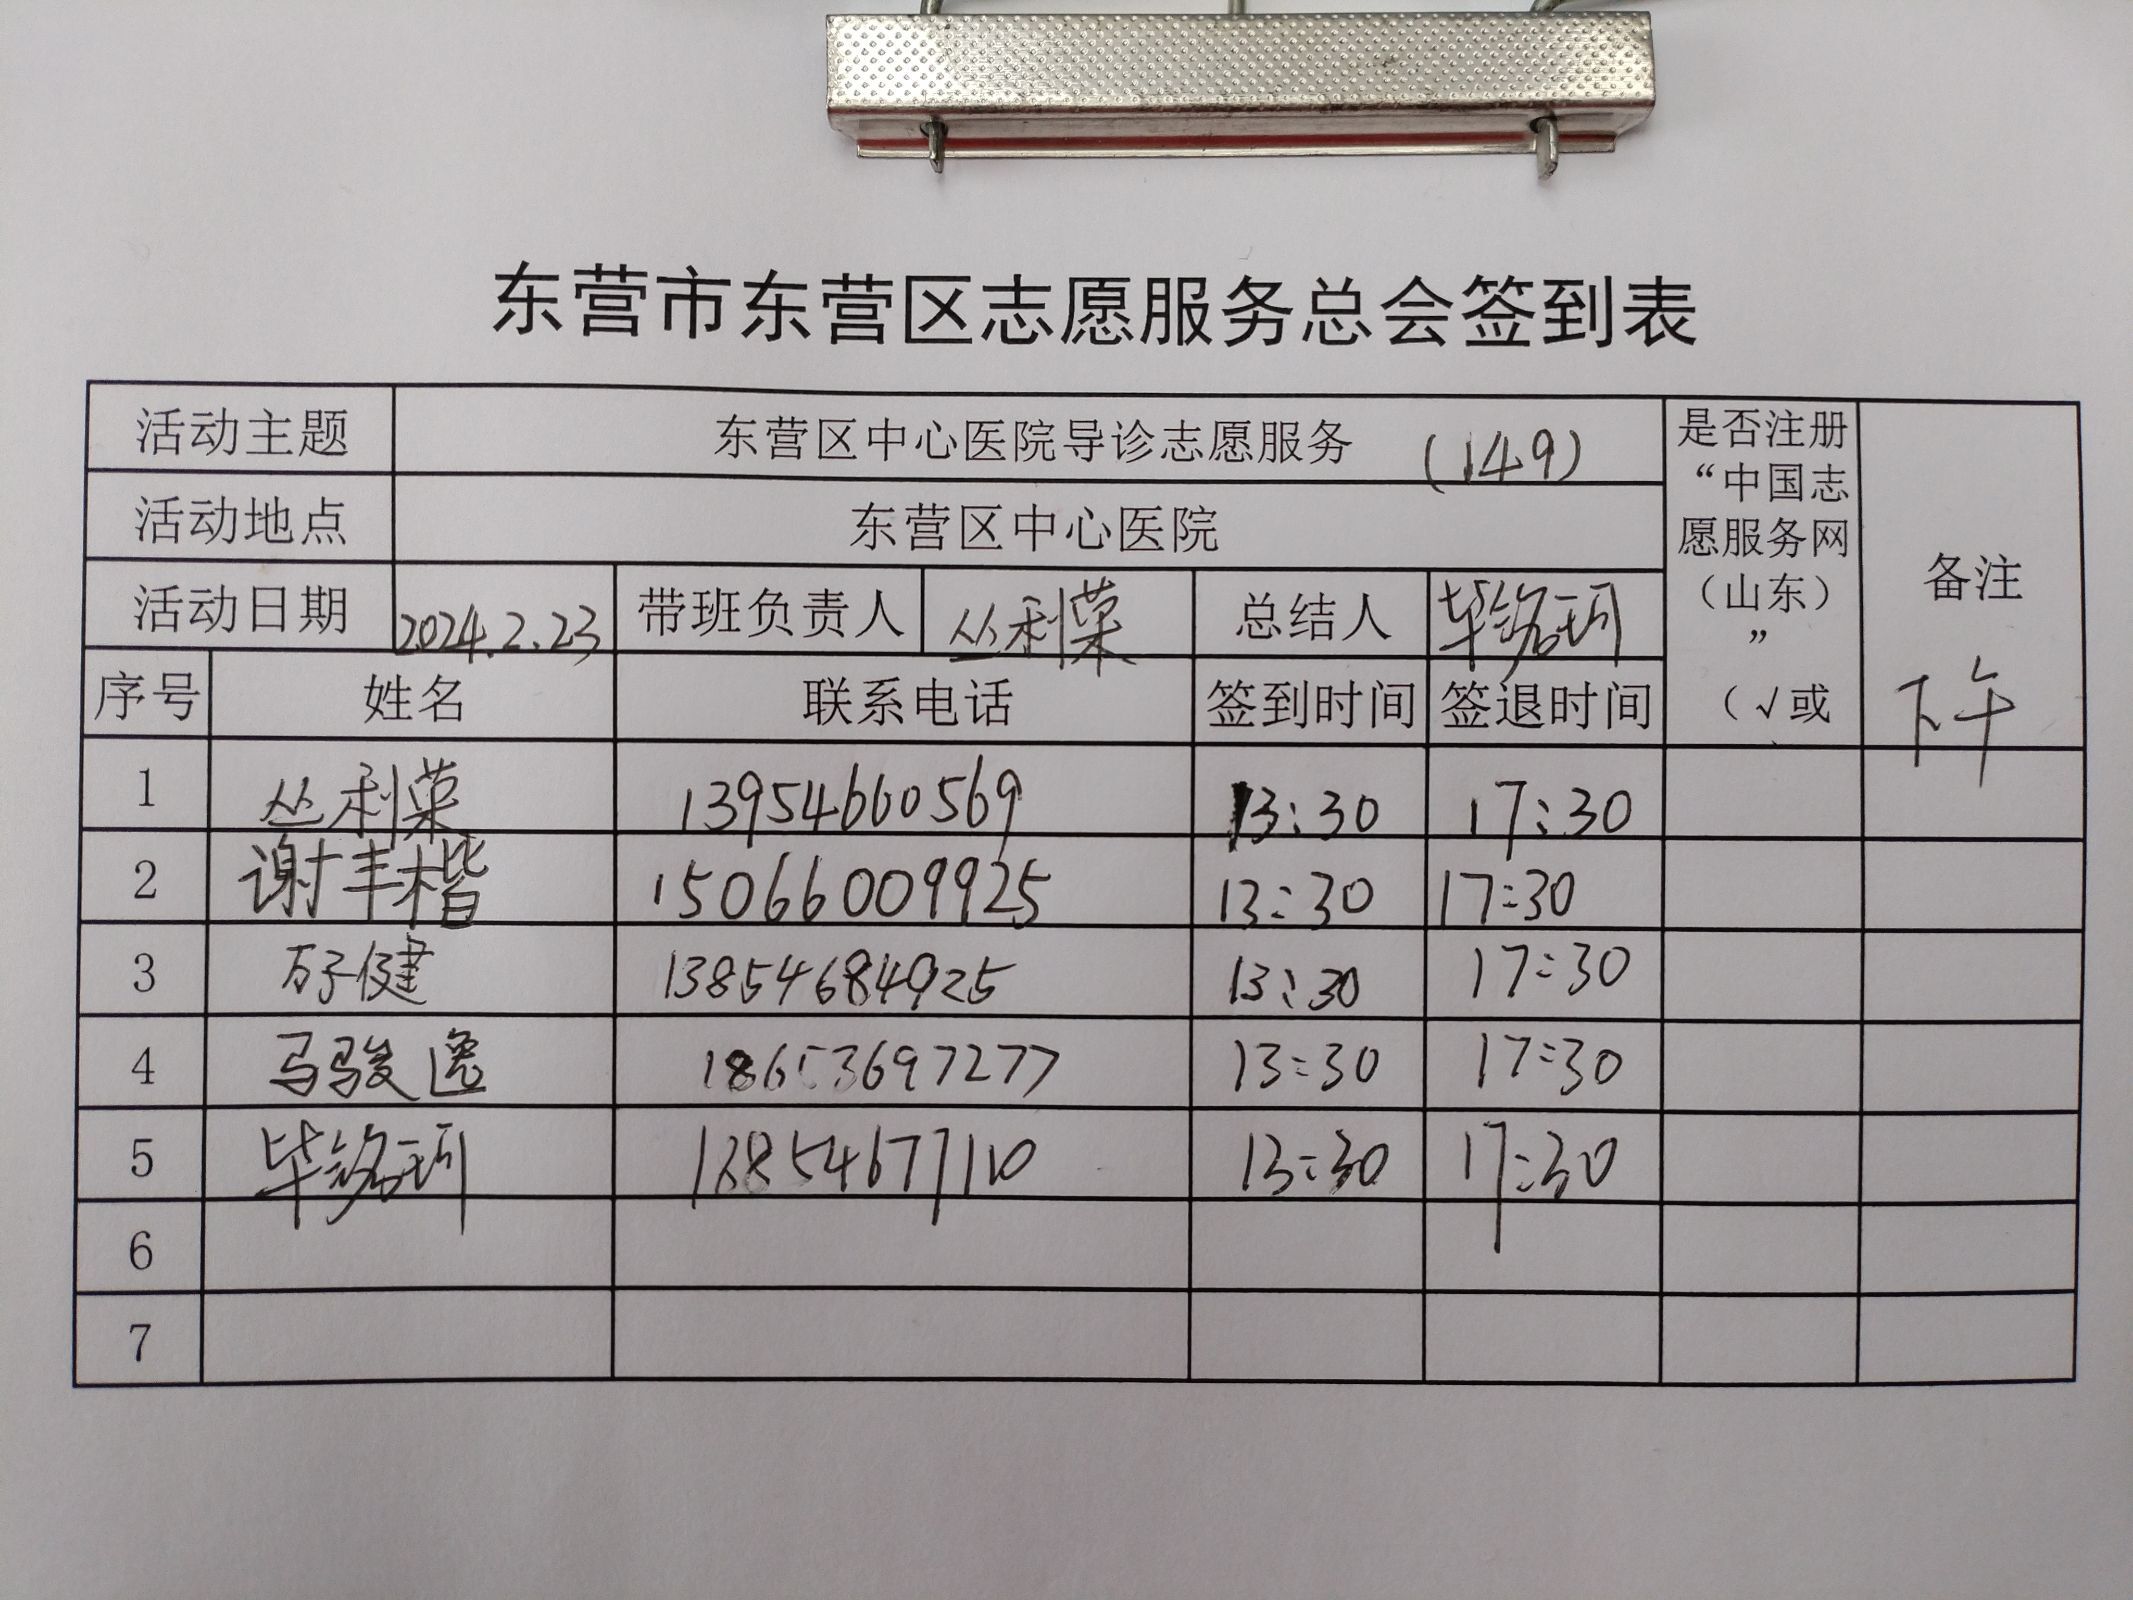 东营市东营区志愿服务总会签到表
活动主题 东营区中心医院导诊志愿服务 (149)
活动地点 东营区中心医院
活动日期 2024.2.23 带班负责人 丛利荣 总结人 毕铭珂
是否注册
“中国志
愿服务网
（山东）
”
（√或
备注
下午
序号 姓名 联系电话 签到时间 签退时间
1 丛利荣 13954660569 13:30 17:30
2 谢丰楷 15066009925 13:30 17:30
3 万子健 13854684925 13:30 17:30
4 马骏逸 18653697277 13:30 17:30
5 毕铭珂 13854677110 13:30 17:30
6
7